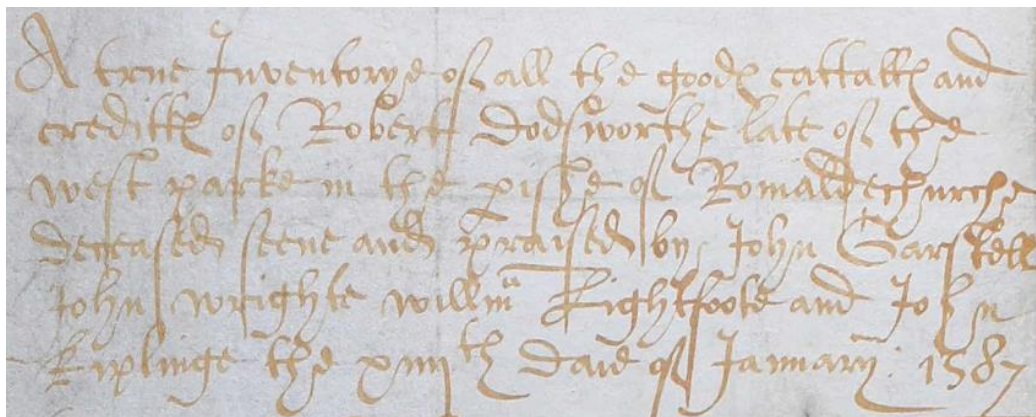 A true Inventorye of all the goodes cattalles and
credittes of Robert Dodsworthe late of the
west parke in the pishe of Romaldechurche
deceased seene and praised by John Garstell
John wrighte willm Lightfoote and John
Kiplinge the xiiijth daie of Januarij. 1587